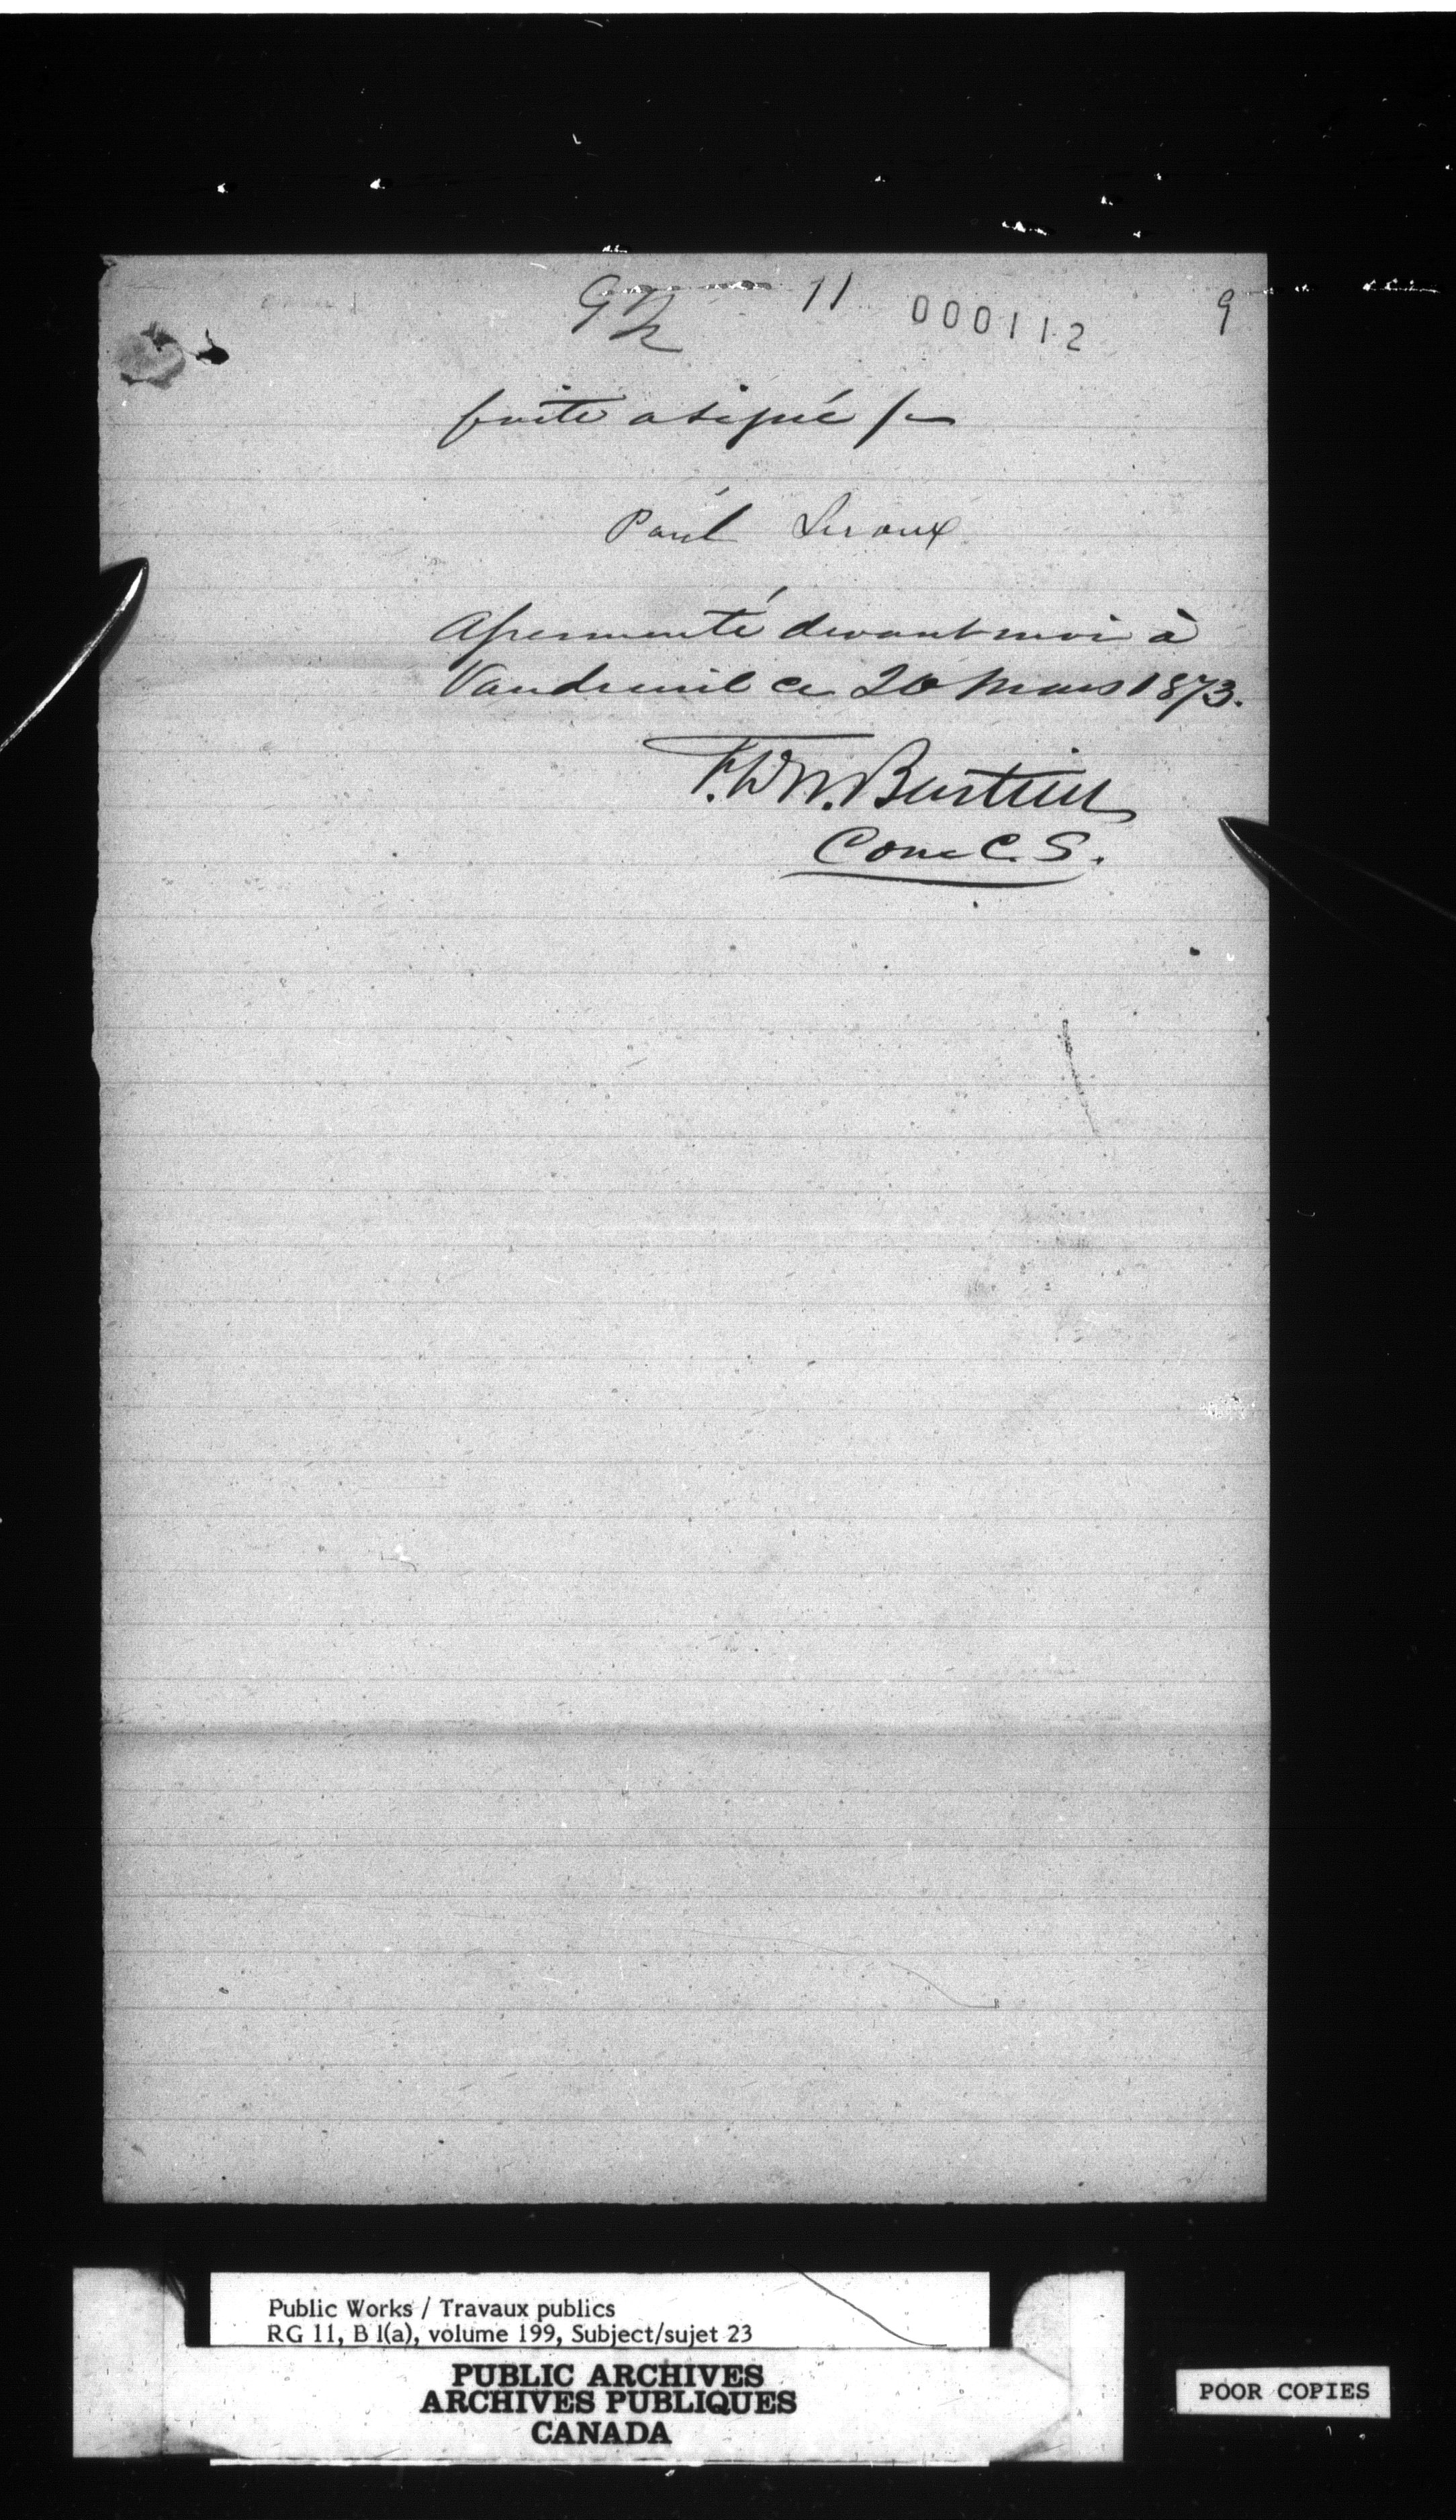 11 000112 9
faite a signé /-
Paul Leroux
Assermenté devant moi à
Vaudreuil ce 20 Mars 1873.
F. Wm.
C. S.
Public Works / Travaux publics
RG 11, B 1(a), volume 199, Subject/sujet 23
PUBLIC ARCHIVES
ARCHIVES PUBLIQUES
CANADA
POOR COPIES